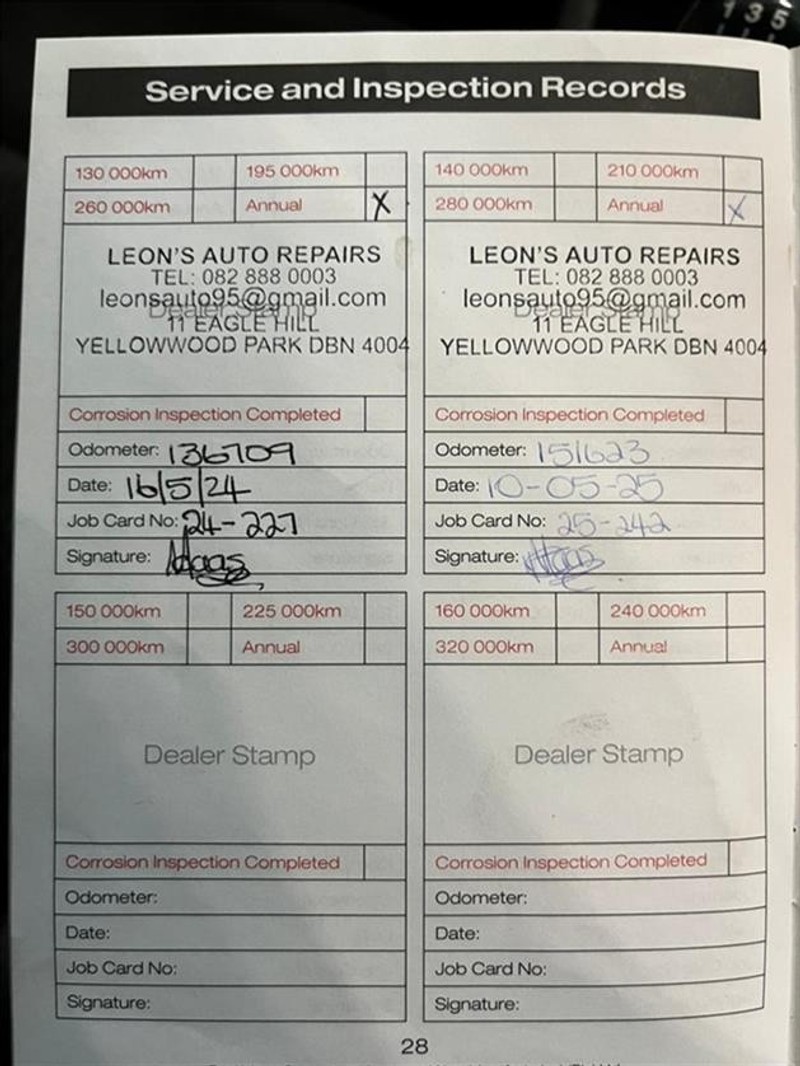 1 3 5
Service and Inspection Records
130 000km 195 000km
260 000km Annual X
LEON'S AUTO REPAIRS
TEL: 082 888 0003
leonsauto95@gmail.com
Dealer Stamp
11 EAGLE HILL
YELLOWWOOD PARK DBN 4004
Corrosion Inspection Completed
Odometer: 136709
Date: 16/5/24
Job Card No: 24-227
Signature:
140 000km 210 000km
280 000km Annual X
LEON'S AUTO REPAIRS
TEL: 082 888 0003
leonsauto95@gmail.com
Dealer Stamp
11 EAGLE HILL
YELLOWWOOD PARK DBN 4004
Corrosion Inspection Completed
Odometer: 151623
Date: 10-05-25
Job Card No: 25-242
Signature:
150 000km 225 000km
300 000km Annual
Dealer Stamp
Corrosion Inspection Completed
Odometer:
Date:
Job Card No:
Signature:
160 000km 240 000km
320 000km Annual
Dealer Stamp
Corrosion Inspection Completed
Odometer:
Date:
Job Card No:
Signature:
28